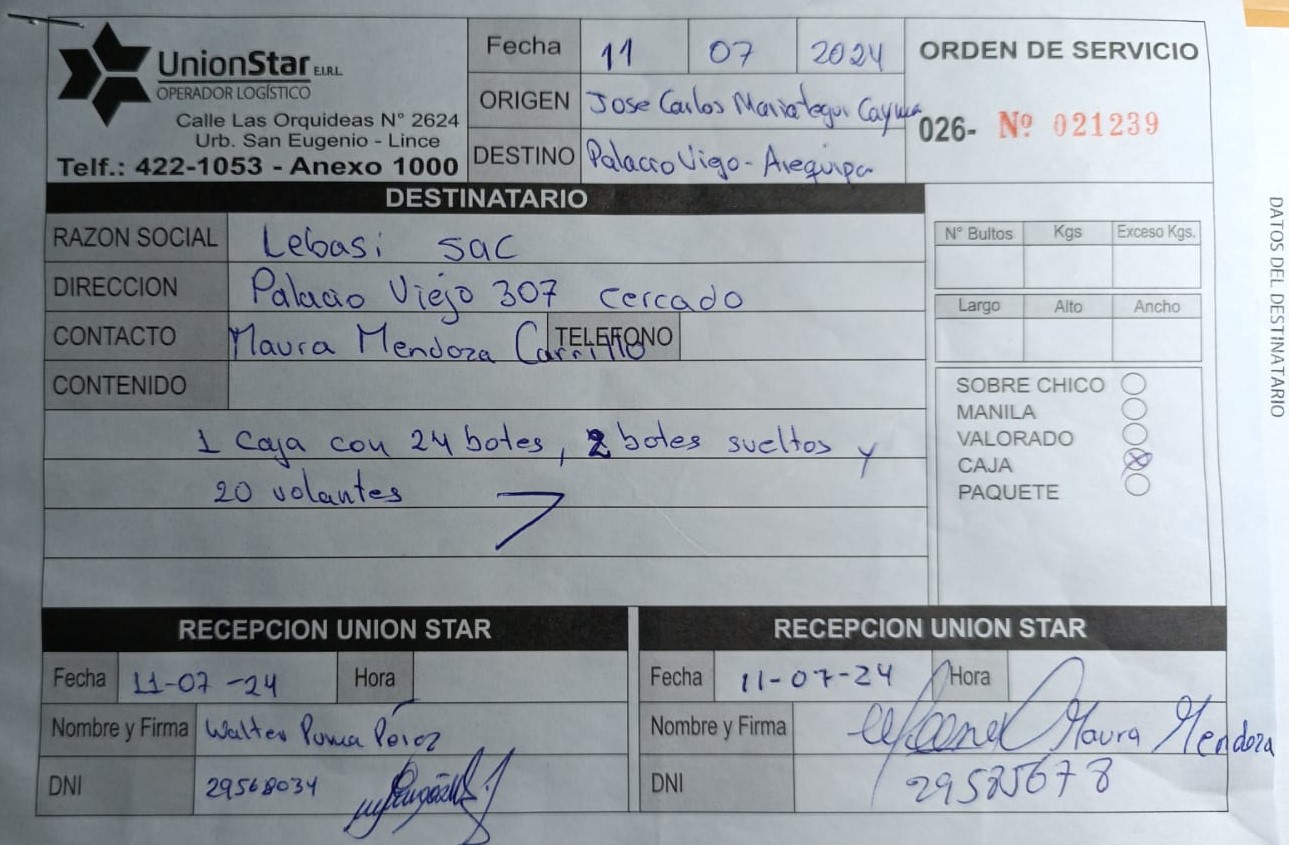 UnionStar E.I.R.L.
OPERADOR LOGÍSTICO
Calle Las Orquideas N° 2624
Urb. San Eugenio - Lince
Telf.: 422-1053 - Anexo 1000
Fecha 11 07 2024
ORIGEN Jose Carlos Mariategui Cayma
DESTINO Palacio Viejo - Arequipa
ORDEN DE SERVICIO
026- Nº 021239
DESTINATARIO
RAZON SOCIAL Lebasi SAC
DIRECCION Palacio Viejo 307 cercado
CONTACTO Maura Mendoza Carrillo TELEFONO
CONTENIDO
1 Caja con 24 botes, 2 botes sueltos y
20 volantes
N° Bultos Kgs Exceso Kgs.
Largo Alto Ancho
SOBRE CHICO
MANILA
VALORADO
CAJA
PAQUETE
DATOS DEL DESTINATARIO
RECEPCION UNION STAR
Fecha 11-07-24 Hora
Nombre y Firma Walter Puma Pérez
DNI 29568034
RECEPCION UNION STAR
Fecha 11-07-24 Hora
Nombre y Firma Maura Mendoza
DNI